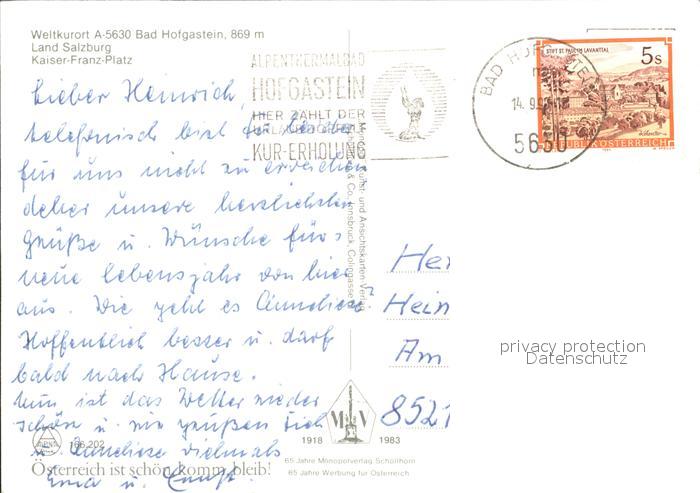 Weltkurort A-5630 Bad Hofgastein, 869 m
Land Salzburg
Kaiser-Franz-Platz
ALPENTHERMALBAD
HOFGASTEIN
HIER ZÄHLT DER
KUR-ERHOLUNG
BAD HOFGASTEIN
14. 9.
5630
STIFT ST. PAUL IM LAVANTTAL
5 S
REPUBLIK ÖSTERREICH
Lieber Heinrich,
telefonisch bist du leider
für uns nicht zu erreichen
daher unsere herzlichsten
Grüße u. Wünsche fürs
neue Lebensjahr von hier
aus. Wie geht es Anneliese?
Hoffentlich besser u. darf
bald nach Hause.
Nun ist das Wetter wieder
schön u. wir grüßen Dich
u. Anneliese vielmals
Erna u. Ernst.
Her
Hein
Am
8521
Kunst- und Ansichtskarten-Verlag
& Co., Innsbruck,
privacy protection
Datenschutz
M V
1918 1983
65 Jahre Monopolverlag Schöllhorn
65 Jahre Werbung für Österreich
166.202
Österreich ist schön, komm, bleib!